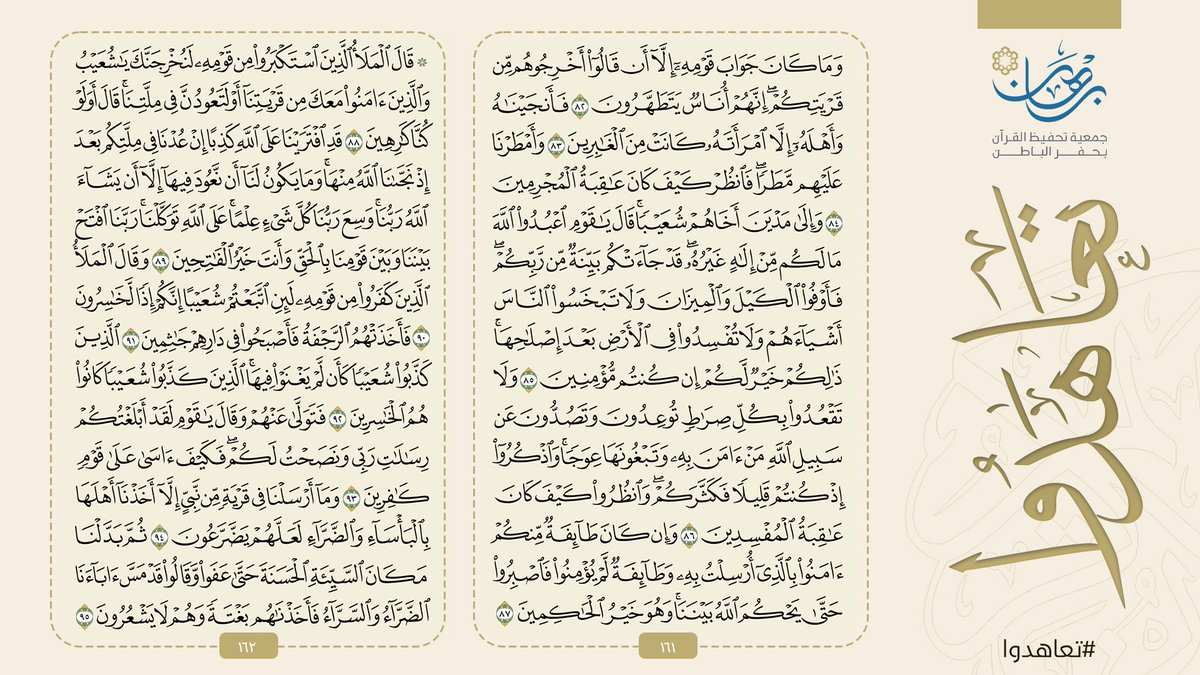 برهان
جمعية تحفيظ القرآن
بحفر الباطن
تعاهدوا
#تعاهدوا
وَمَا كَانَ جَوَابَ قَوْمِهِۦٓ إِلَّآ أَن قَالُوٓا۟ أَخْرِجُوهُم مِّن
قَرْيَتِكُمْ ۖ إِنَّهُمْ أُنَاسٌ يَتَطَهَّرُونَ ٨٢ فَأَنجَيْنَٰهُ
وَأَهْلَهُۥٓ إِلَّا ٱمْرَأَتَهُۥ كَانَتْ مِنَ ٱلْغَٰبِرِينَ ٨٣ وَأَمْطَرْنَا
عَلَيْهِم مَّطَرًا ۖ فَٱنظُرْ كَيْفَ كَانَ عَٰقِبَةُ ٱلْمُجْرِمِينَ
٨٤ وَإِلَىٰ مَدْيَنَ أَخَاهُمْ شُعَيْبًا ۗ قَالَ يَٰقَوْمِ ٱعْبُدُوا۟ ٱللَّهَ
مَا لَكُم مِّنْ إِلَٰهٍ غَيْرُهُۥ ۖ قَدْ جَآءَتْكُم بَيِّنَةٌ مِّن رَّبِّكُمْ ۖ
فَأَوْفُوا۟ ٱلْكَيْلَ وَٱلْمِيزَانَ وَلَا تَبْخَسُوا۟ ٱلنَّاسَ
أَشْيَآءَهُمْ وَلَا تُفْسِدُوا۟ فِى ٱلْأَرْضِ بَعْدَ إِصْلَٰحِهَا ۚ
ذَٰلِكُمْ خَيْرٌ لَّكُمْ إِن كُنتُم مُّؤْمِنِينَ ٨٥ وَلَا
تَقْعُدُوا۟ بِكُلِّ صِرَٰطٍ تُوعِدُونَ وَتَصُدُّونَ عَن
سَبِيلِ ٱللَّهِ مَنْ ءَامَنَ بِهِۦ وَتَبْغُونَهَا عِوَجًا ۚ وَٱذْكُرُوٓا۟
إِذْ كُنتُمْ قَلِيلًا فَكَثَّرَكُمْ ۖ وَٱنظُرُوا۟ كَيْفَ كَانَ
عَٰقِبَةُ ٱلْمُفْسِدِينَ ٨٦ وَإِن كَانَ طَآئِفَةٌ مِّنكُمْ
ءَامَنُوا۟ بِٱلَّذِىٓ أُرْسِلْتُ بِهِۦ وَطَآئِفَةٌ لَّمْ يُؤْمِنُوا۟ فَٱصْبِرُوا۟
حَتَّىٰ يَحْكُمَ ٱللَّهُ بَيْنَنَا ۚ وَهُوَ خَيْرُ ٱلْحَٰكِمِينَ ٨٧
١٦١
۞ قَالَ ٱلْمَلَأُ ٱلَّذِينَ ٱسْتَكْبَرُوا۟ مِن قَوْمِهِۦ لَنُخْرِجَنَّكَ يَٰشُعَيْبُ
وَٱلَّذِينَ ءَامَنُوا۟ مَعَكَ مِن قَرْيَتِنَآ أَوْ لَتَعُودُنَّ فِى مِلَّتِنَا ۚ قَالَ أَوَلَوْ
كُنَّا كَٰرِهِينَ ٨٨ قَدِ ٱفْتَرَيْنَا عَلَى ٱللَّهِ كَذِبًا إِنْ عُدْنَا فِى مِلَّتِكُم بَعْدَ
إِذْ نَجَّىٰنَا ٱللَّهُ مِنْهَا ۚ وَمَا يَكُونُ لَنَآ أَن نَّعُودَ فِيهَآ إِلَّآ أَن يَشَآءَ
ٱللَّهُ رَبُّنَا ۚ وَسِعَ رَبُّنَا كُلَّ شَىْءٍ عِلْمًا ۚ عَلَى ٱللَّهِ تَوَكَّلْنَا ۚ رَبَّنَا ٱفْتَحْ
بَيْنَنَا وَبَيْنَ قَوْمِنَا بِٱلْحَقِّ وَأَنتَ خَيْرُ ٱلْفَٰتِحِينَ ٨٩ وَقَالَ ٱلْمَلَأُ
ٱلَّذِينَ كَفَرُوا۟ مِن قَوْمِهِۦ لَئِنِ ٱتَّبَعْتُمْ شُعَيْبًا إِنَّكُمْ إِذًا لَّخَٰسِرُونَ
٩٠ فَأَخَذَتْهُمُ ٱلرَّجْفَةُ فَأَصْبَحُوا۟ فِى دَارِهِمْ جَٰثِمِينَ ٩١ ٱلَّذِينَ
كَذَّبُوا۟ شُعَيْبًا كَأَن لَّمْ يَغْنَوْا۟ فِيهَا ۚ ٱلَّذِينَ كَذَّبُوا۟ شُعَيْبًا كَانُوا۟
هُمُ ٱلْخَٰسِرِينَ ٩٢ فَتَوَلَّىٰ عَنْهُمْ وَقَالَ يَٰقَوْمِ لَقَدْ أَبْلَغْتُكُمْ
رِسَٰلَٰتِ رَبِّى وَنَصَحْتُ لَكُمْ ۖ فَكَيْفَ ءَاسَىٰ عَلَىٰ قَوْمٍ
كَٰفِرِينَ ٩٣ وَمَآ أَرْسَلْنَا فِى قَرْيَةٍ مِّن نَّبِىٍّ إِلَّآ أَخَذْنَآ أَهْلَهَا
بِٱلْبَأْسَآءِ وَٱلضَّرَّآءِ لَعَلَّهُمْ يَضَّرَّعُونَ ٩٤ ثُمَّ بَدَّلْنَا
مَكَانَ ٱلسَّيِّئَةِ ٱلْحَسَنَةَ حَتَّىٰ عَفَوا۟ وَّقَالُوا۟ قَدْ مَسَّ ءَابَآءَنَا
ٱلضَّرَّآءُ وَٱلسَّرَّآءُ فَأَخَذْنَٰهُم بَغْتَةً وَهُمْ لَا يَشْعُرُونَ ٩٥
١٦٢